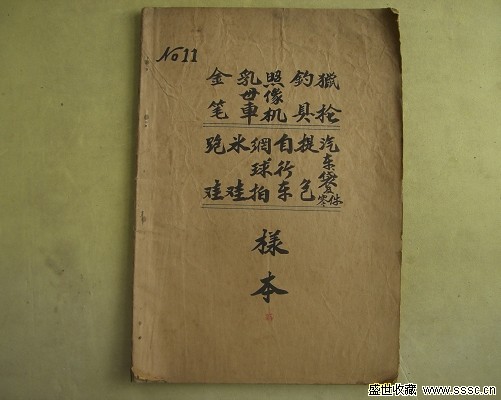 No11
獵枪
钓具
照像机
乳母車
金笔
汽车
零件
提包
自行车
網球拍
氷鞋
跑鞋
樣本
盛世收藏 www.sssc.cn